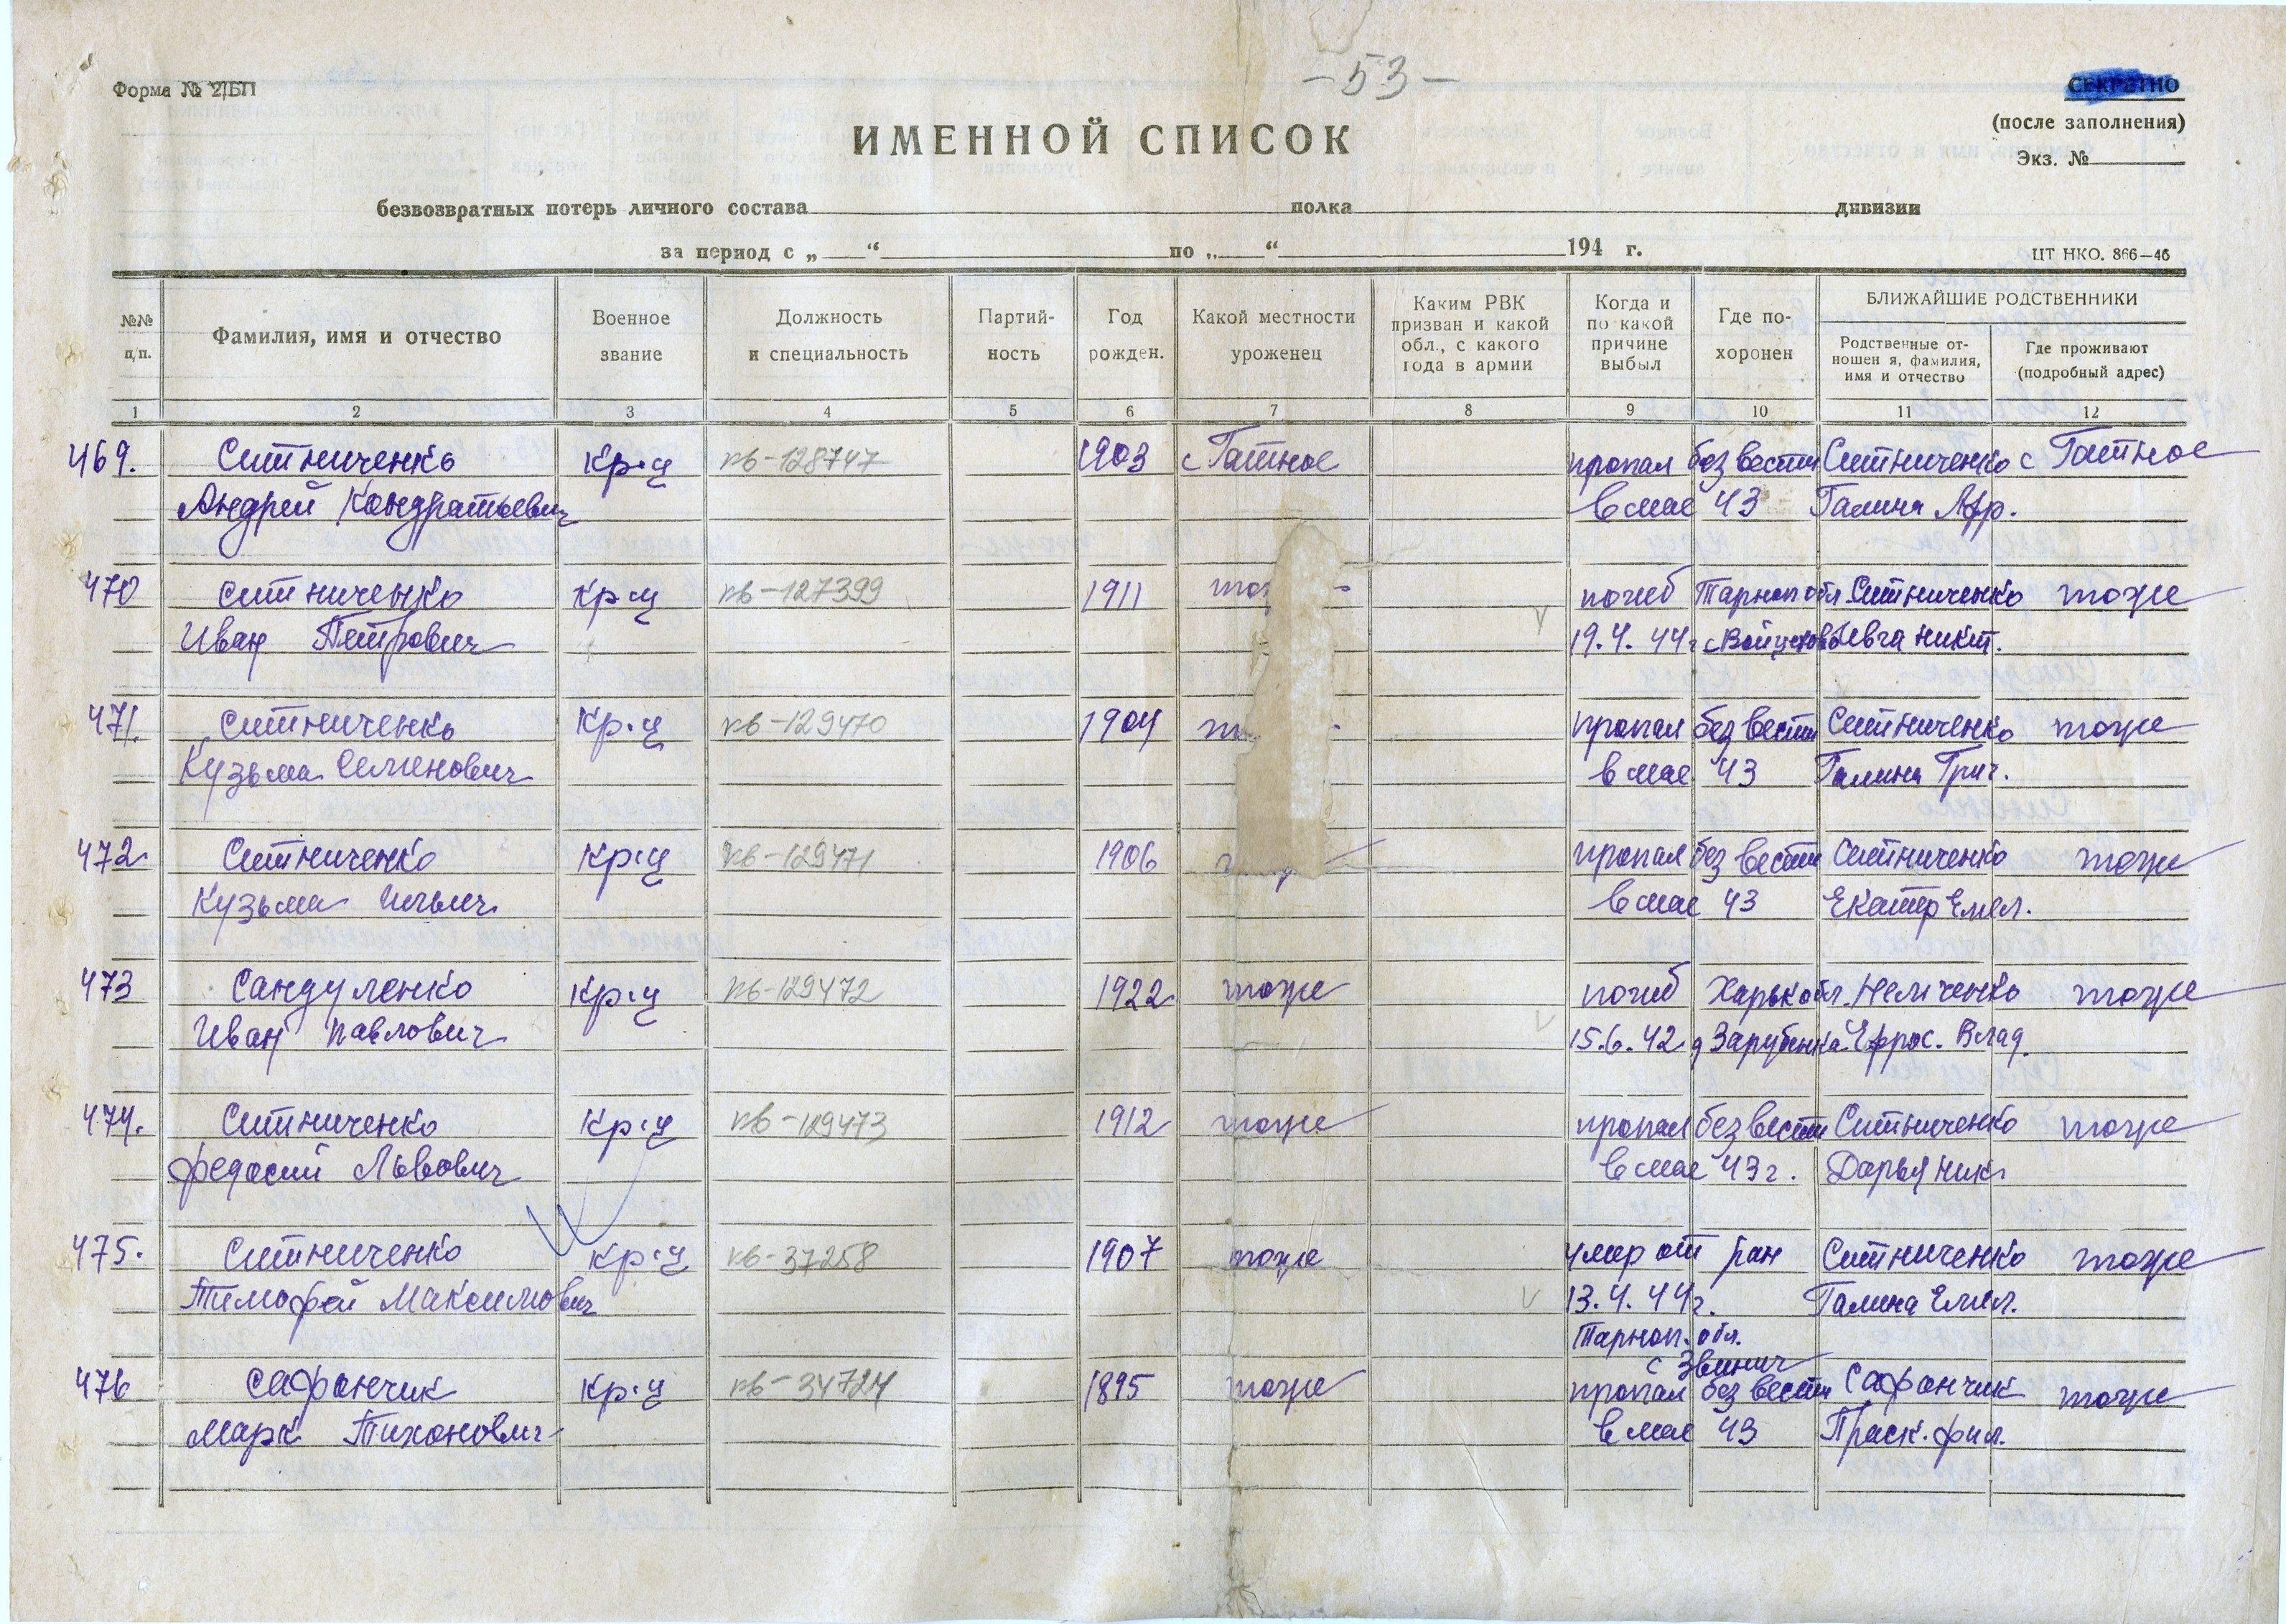 - 53 -
Форма № 2/БП
СЕКРЕТНО
(после заполнения)
Экз. №
ИМЕННОЙ СПИСОК
безвозвратных потерь личного состава полка дивизии
за период с „ “ по „ “ 194 г.
ЦТ НКО. 866—46
№№ п/п. Фамилия, имя и отчество Военное звание Должность и специальность Партий-ность Год рожден. Какой местности уроженец Каким РВК призван и какой обл., с какого года в армии Когда и по какой причине выбыл Где по-хоронен БЛИЖАЙШИЕ РОДСТВЕННИКИ
Родственные от-ношен я, фамилия, имя и отчество Где проживают (подробный адрес)
1 2 3 4 5 6 7 8 9 10 11 12
469. Ситниченко кр-ц пв-128747 1903 с Гатное пропал без вести Ситниченко с Гатное
Андрей Кондратьевич в мае 43 Галина Афр.
470 Ситниченко кр-ц пв-127399 1911 погиб Тарноп обл Ситниченко тоже
Иван Петрович 19.4.44г Никит.
471. Ситниченко кр-ц пв-129470 1904 пропал без вести Ситниченко тоже
Кузьма Семенович в мае 43 Галина Григ.
472 Ситниченко кр-ц пв-129471 1906 пропал без вести Ситниченко тоже
Кузьма Ильич в мае 43 Екатер Емел.
473 Сандуленко кр-ц пв-129472 1922 тоже погиб Харьк обл. тоже
Иван Павлович 15.6.42 д Зарубинка Ефрос. Влад.
474. Ситниченко кр-ц пв-129473 1912 тоже пропал без вести Ситниченко тоже
Федосий Львович в мае 43г. Дарья Ник
475. Ситниченко кр-ц пв-37258 1907 тоже умер от ран Ситниченко тоже
Тимофей Максимович 13.4.44г. Галина Емел.
Тарноп. обл.
с Звинич
476 Сафончик кр-ц пв-34724 1895 тоже пропал без вести Сафончик тоже
Марк Тихонович в мае 43 Праск. Фил.